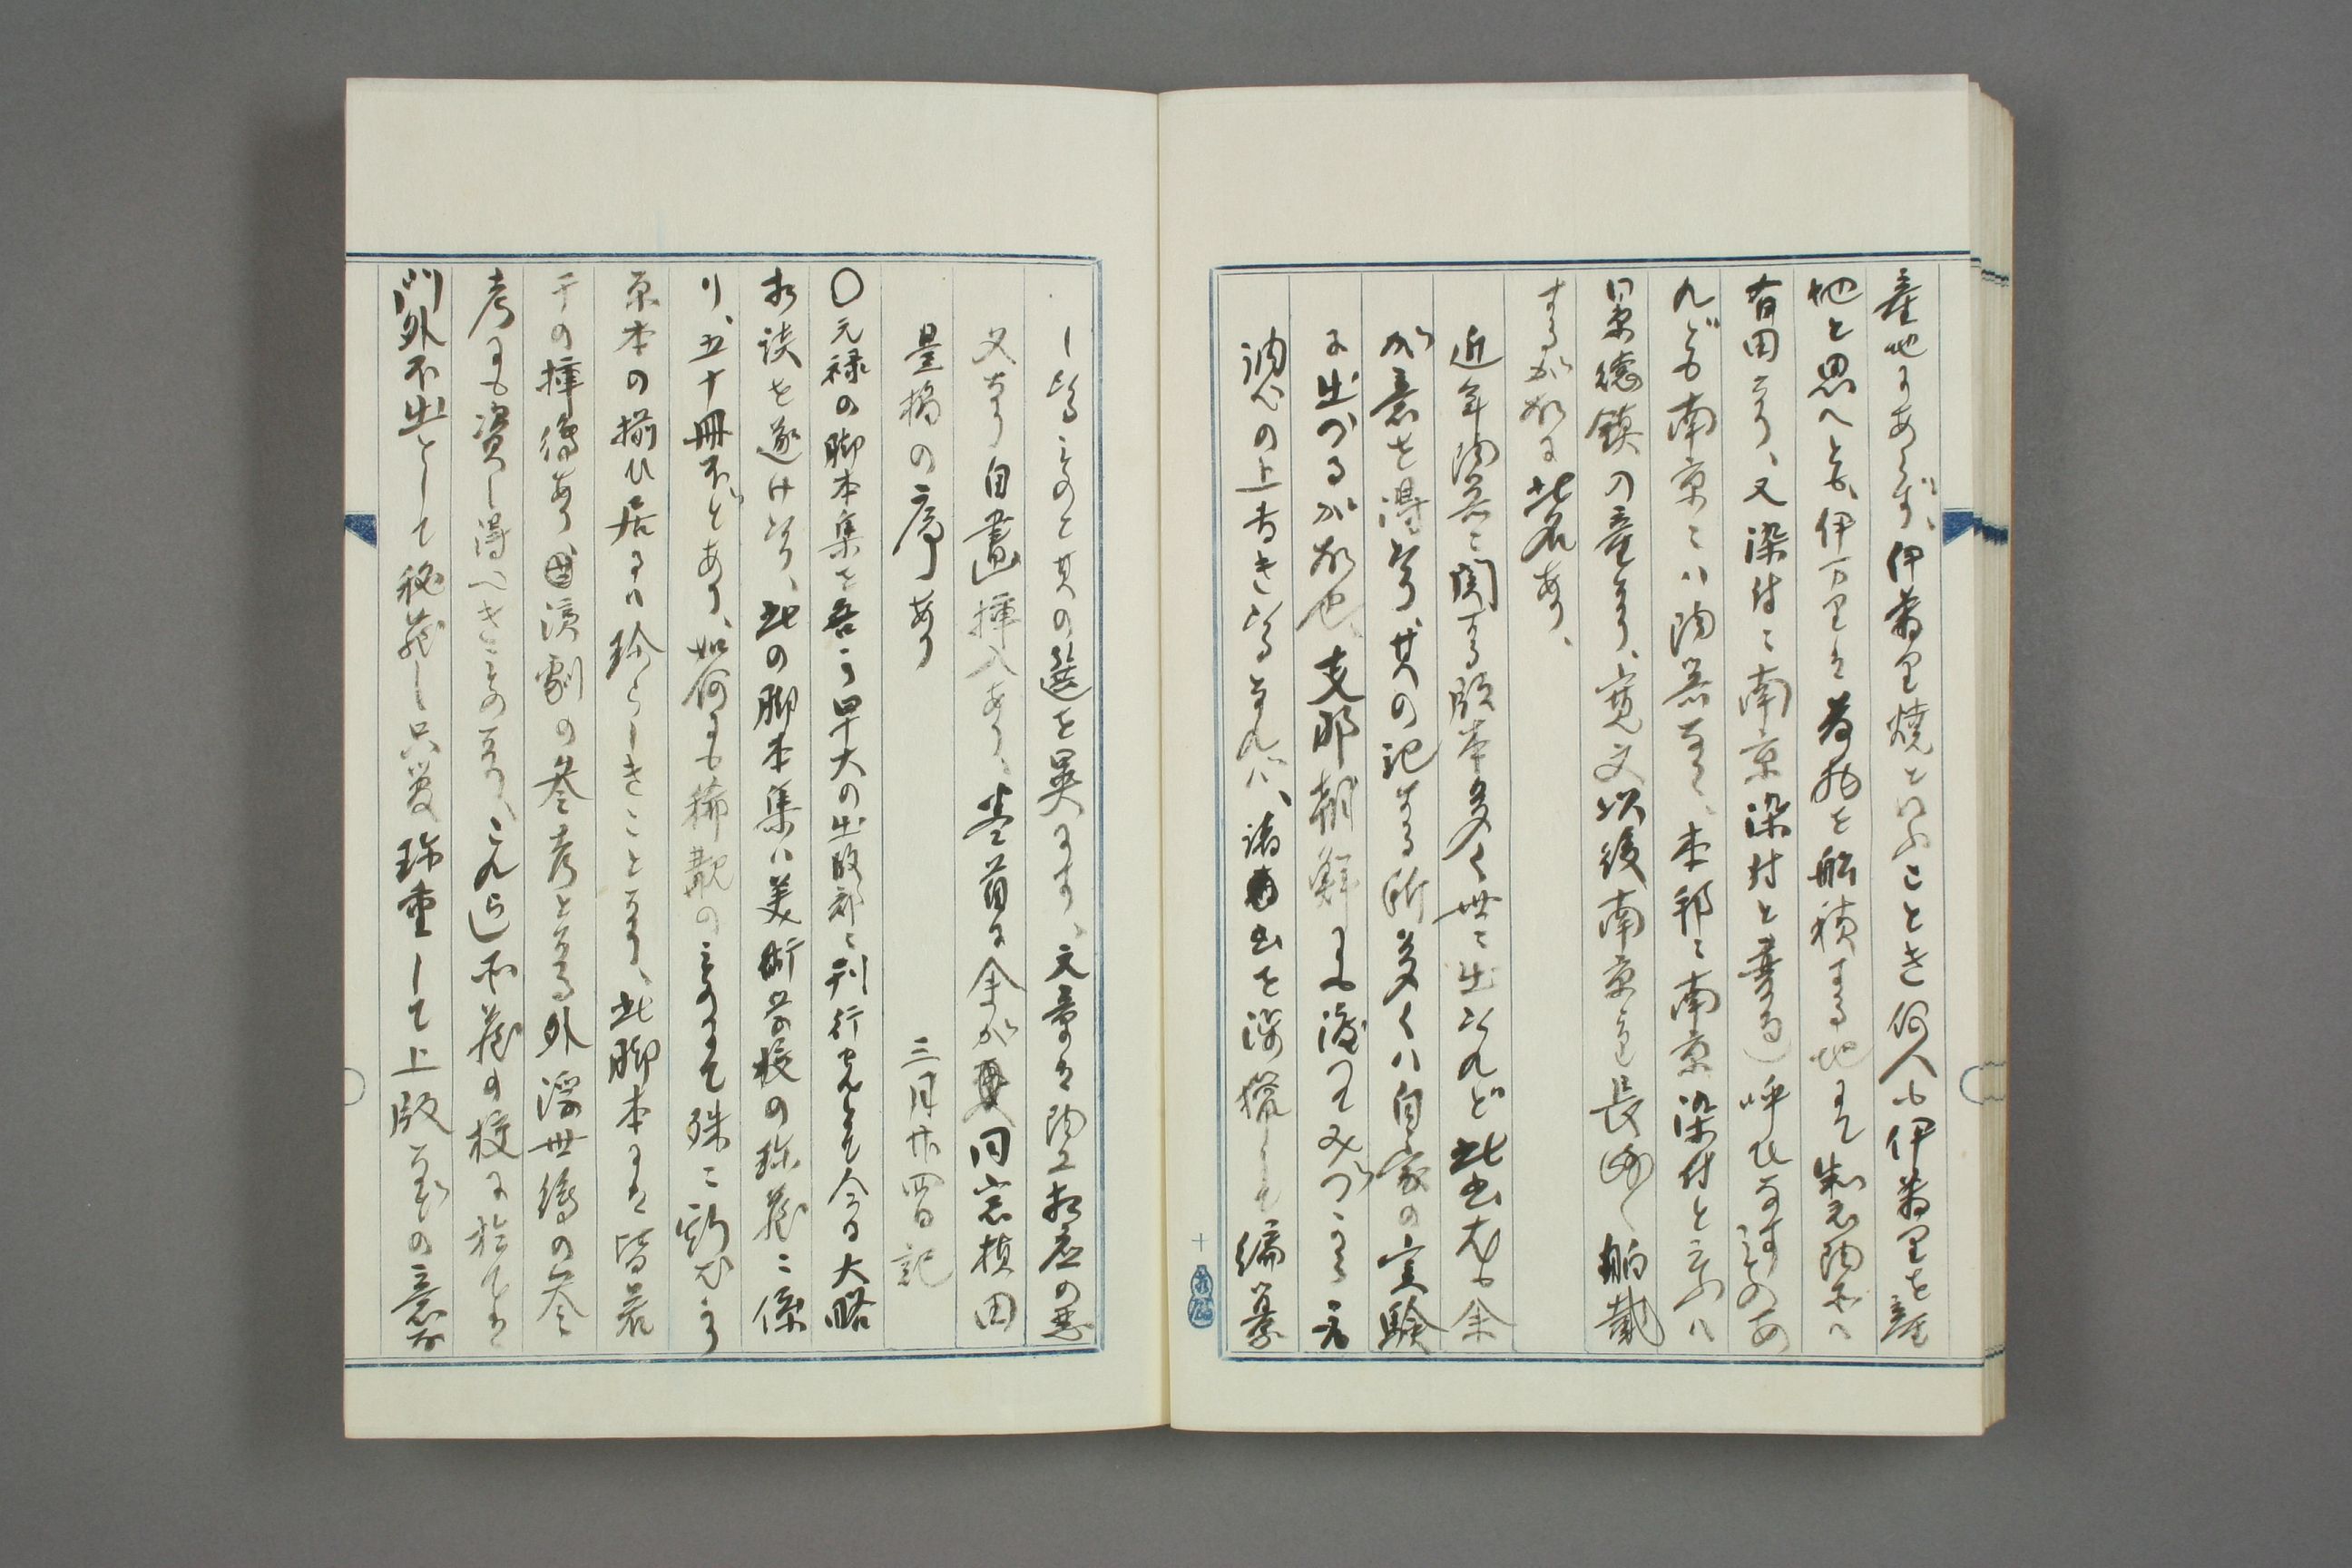 産地にあらず、伊万里焼といふことき何人も伊万里を産
地と思へとも、伊万里は荷物を船積する地にて製産陶器ハ
有田なり、又染付ニ南京染付と称する呼ひなすものあ
れども南京ニハ陶器なく、本邦ニ南京染付と云ふハ
景徳鎮の産なり、寛文以後南京より長崎へ舶載
するが故に此名あり、
近年陶器ニ関する版本多く世ニ出れど此書尤も余
が意を得たり、其の記する所多くハ自家の実験
に出づるが故也、支那朝鮮にも渡りてみづから
調べの上書きたるものなれバ、諸書を渉猟して編纂
したるものと其の選を異にす、文章は陶工相応の悪
文なり自画挿入あり、巻首に余が同窓植田
豊橘の序あり
三月廿四日記
〇元禄の脚本集を吾が早大の出版部ニ刊行せんとて今日大略
相談を遂けたり、此の脚本集ハ美術学校の珍蔵ニ係
り、五十冊ほどあり、如何にも稀覯のものにて殊ニ
原本の揃ひ居るハ珍らしきことなり、此脚本には皆若
干の挿絵あり、演劇の参考となる外浮世絵の参
考にも資し得へきものなり、これ迄所蔵の校に於ては
門外不出として秘蔵し只管珍重して上版なぞの意な